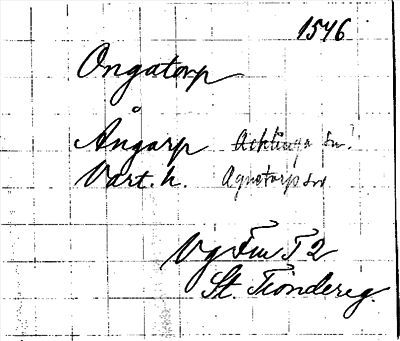 1546
Ongatorp
Ångarp Acklinga sn?
Vart. h. Agnetorp sn
Vg Fm T 2
St. Tiondereg.